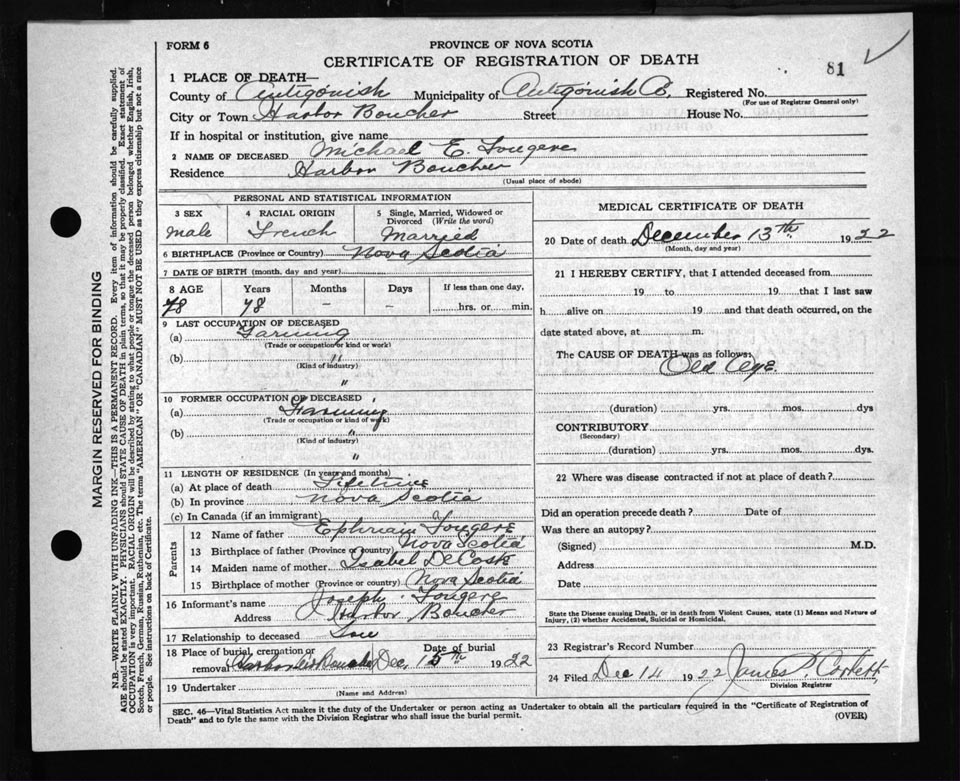 FORM 6
PROVINCE OF NOVA SCOTIA
CERTIFICATE OF REGISTRATION OF DEATH
81
1 PLACE OF DEATH—
County of Antigonish Municipality of Antigonish Co. Registered No.
(For use of Registrar General only)
City or Town Harbor Boucher Street House No.
If in hospital or institution, give name
2 NAME OF DECEASED Michael E. Fougere
Residence Harbor Boucher
(Usual place of abode)
PERSONAL AND STATISTICAL INFORMATION
3 SEX 4 RACIAL ORIGIN 5 Single, Married, Widowed or Divorced (Write the word)
male French Married
6 BIRTHPLACE (Province or Country) Nova Scotia
7 DATE OF BIRTH (month, day and year)
8 AGE Years Months Days If less than one day,
78 78 — — hrs. or min.
9 LAST OCCUPATION OF DECEASED
(a) Farming
(Trade or occupation or kind or work)
(b) "
(Kind of industry)
"
10 FORMER OCCUPATION OF DECEASED
(a) Farming
(Trade or occupation or kind of work)
(b) "
(Kind of industry)
"
11 LENGTH OF RESIDENCE (In years and months)
(a) At place of death Lifetime
(b) In province Nova Scotia
(c) In Canada (if an immigrant)
Parents
12 Name of father Ephriam Fougere
13 Birthplace of father (Province or country) Nova Scotia
14 Maiden name of mother Isabel DeCoste
15 Birthplace of mother (Province or country) Nova Scotia
16 Informant's name Joseph Fougere
Address Harbor Boucher
17 Relationship to deceased Son
18 Place of burial, cremation or removal Harbor Boucher Date of burial Dec. 15th 1922
19 Undertaker
(Name and Address)
MEDICAL CERTIFICATE OF DEATH
20 Date of death December 13th 1922
(Month, day and year)
21 I HEREBY CERTIFY, that I attended deceased from
19 to 19 that I last saw
h alive on 19 and that death occurred, on the
date stated above, at m.
The CAUSE OF DEATH was as follows:
Old Age.
(duration) yrs. mos. dys
CONTRIBUTORY
(Secondary)
(duration) yrs. mos. dys.
22 Where was disease contracted if not at place of death?
Did an operation precede death? Date of
Was there an autopsy?
(Signed) M.D.
Address
Date
State the Disease causing Death, or in death from Violent Causes, state (1) Means and Nature of
Injury, (2) whether Accidental, Suicidal or Homicidal.
23 Registrar's Record Number
24 Filed Dec 14 1922 James P Corbett
Division Registrar
SEC. 46—Vital Statistics Act makes it the duty of the Undertaker or person acting as Undertaker to obtain all the particulars required in the "Certificate of Registration of
Death" and to fyle the same with the Division Registrar who shall issue the burial permit.
(OVER)
MARGIN RESERVED FOR BINDING
N.B.—WRITE PLAINLY WITH UNFADING INK—THIS IS A PERMANENT RECORD. Every item of information should be carefully supplied.
AGE should be stated EXACTLY. PHYSICIANS should STATE CAUSE OF DEATH in plain terms, so that it may be properly classified. Exact statement of
OCCUPATION is very important. RACIAL ORIGIN will be described by stating to what people or tongue the deceased person belonged whether English, Irish,
Scotch, French, German, Russian, Ruthenian, etc. The terms "AMERICAN" OR "CANADIAN" MUST NOT BE USED as they express citizenship but not a race
or people. See instructions on back of Certificate.